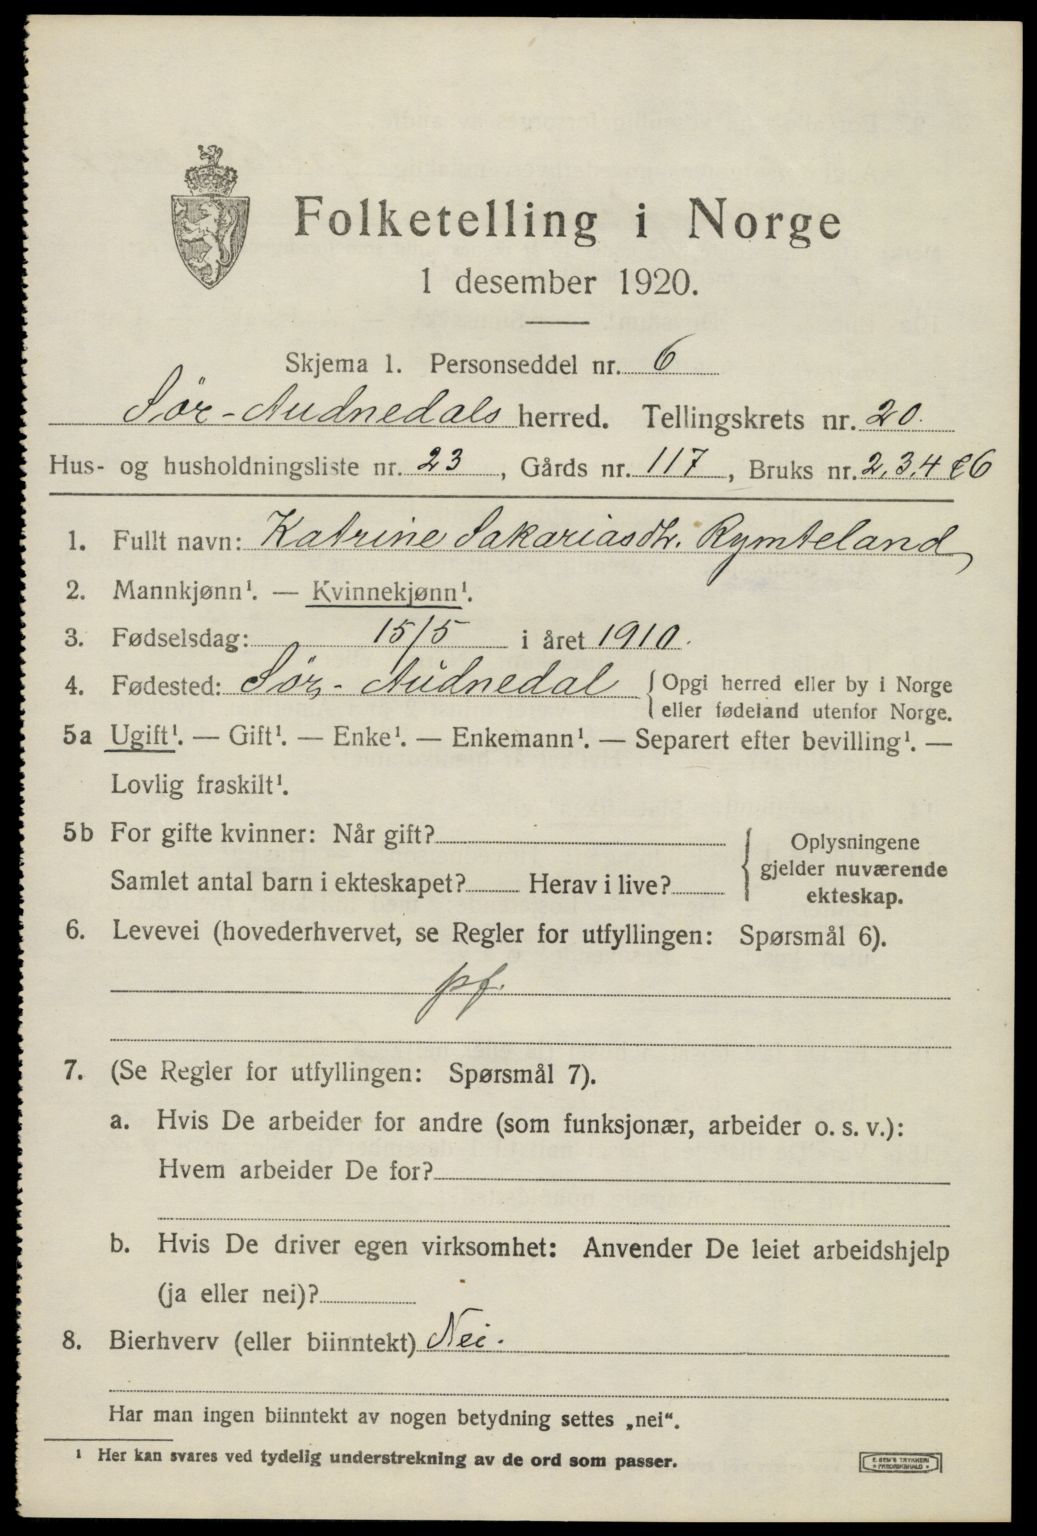 Folketelling i Norge
1 desember 1920.
Skjema 1. Personseddel nr. 6
Sør-Audnedals herred. Tellingskrets nr. 20.
Hus- og husholdningsliste nr. 23, Gårds nr. 117, Bruks nr. 2,3,4 & 6
1. Fullt navn: Katrine Sakariasdtr. Rymteland
2. Mannkjønn¹. — Kvinnekjønn¹.
3. Fødselsdag: 15/5 i året 1910.
4. Fødested: Sør-Audnedal { Opgi herred eller by i Norge
eller fødeland utenfor Norge.
5a Ugift¹. — Gift¹. — Enke¹. — Enkemann¹. — Separert efter bevilling¹. —
Lovlig fraskilt¹.
5b For gifte kvinner: Når gift?
Samlet antal barn i ekteskapet? Herav i live?
{ Oplysningene
gjelder nuværende
ekteskap.
6. Levevei (hovederhvervet, se Regler for utfyllingen: Spørsmål 6).
pf.
7. (Se Regler for utfyllingen: Spørsmål 7).
a. Hvis De arbeider for andre (som funksjonær, arbeider o. s. v.):
Hvem arbeider De for?
b. Hvis De driver egen virksomhet: Anvender De leiet arbeidshjelp
(ja eller nei)?
8. Bierhverv (eller biinntekt) Nei.
Har man ingen biinntekt av nogen betydning settes „nei“.
¹ Her kan svares ved tydelig understrekning av de ord som passer.